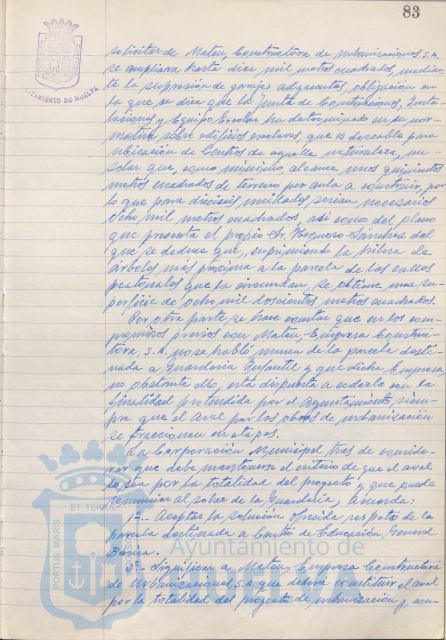 83
AYUNTAMIENTO DE HUELVA
solicitar de Mateu, Constructora de Urbanizaciones S.A.
se ampliara hasta diez mil metros cuadrados, median
te la supresión de garajes adyacentes, obligación en
la que se dice que la Junta de Construcciones, Insta
laciones y Equipo Escolar ha determinado en su nor-
mativa sobre edificios escolares, que es deseable para
ubicación de Centros de aquella naturaleza, un
solar que, como mínimo, alcance unos quinientos
metros cuadrados de terreno por aula a construir, por
lo que para dieciseis unidades serian necesarios
ocho mil metros cuadrados, así como del plano
que presenta el propio Sr. Herrero Sánchez del
que se deduce que, suprimiendo la hilera de
árboles más próxima a la parcela de las calles
peatonales que la circundan, se obtiene una su-
perficie de ocho mil doscientos metros cuadrados.
Por otra parte se hace constar que en los com-
promisos previos con Mateu, Empresa Construc
tora, S.A. no se habló nunca de la parcela desti-
nada a Guardería Infantil y que dicha Empresa,
no obstante ello, está dispuesta a cederla con la
finalidad pretendida por el Ayuntamiento, siem-
pre que el aval por las obras de urbanización
se fraccione en etapas.
La Corporación Municipal tras de conside-
rar que debe mantenerse el criterio de que el aval
lo sea por la totalidad del proyecto y que puede
renunciar al solar de la Guardería, acuerda:
1º.- Aceptar la solución ofrecida respeto de la
parcela destinada a Centro de Educación General
Básica.
2º.- Significar a Mateu, Empresa Constructora
de Urbanizaciones S.A. que deberá constituir el aval
por la totalidad del proyecto de urbanización y, con-
PORTUS MARIS ET TERRAE
Ayuntamiento de
Huelva